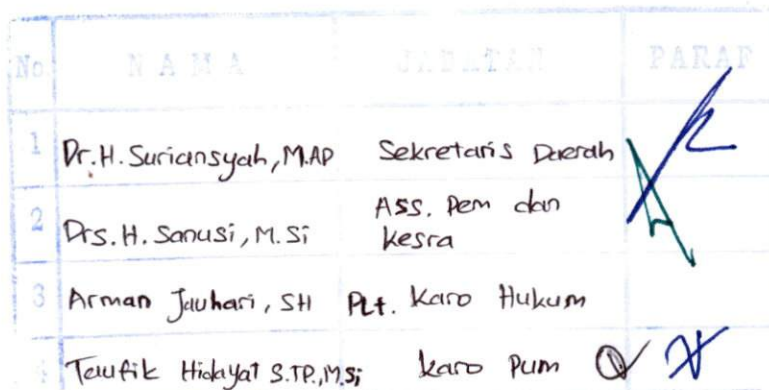 No NAMA JABATAN PARAF
1 Dr. H. Suriansyah, M.AP Sekretaris Daerah
2 Drs. H. Sanusi, M.Si Ass. Pem dan Kesra
3 Arman Jauhari, SH Plt. Karo Hukum
4 Taufik Hidayat S.TP., M.Si Karo Pum